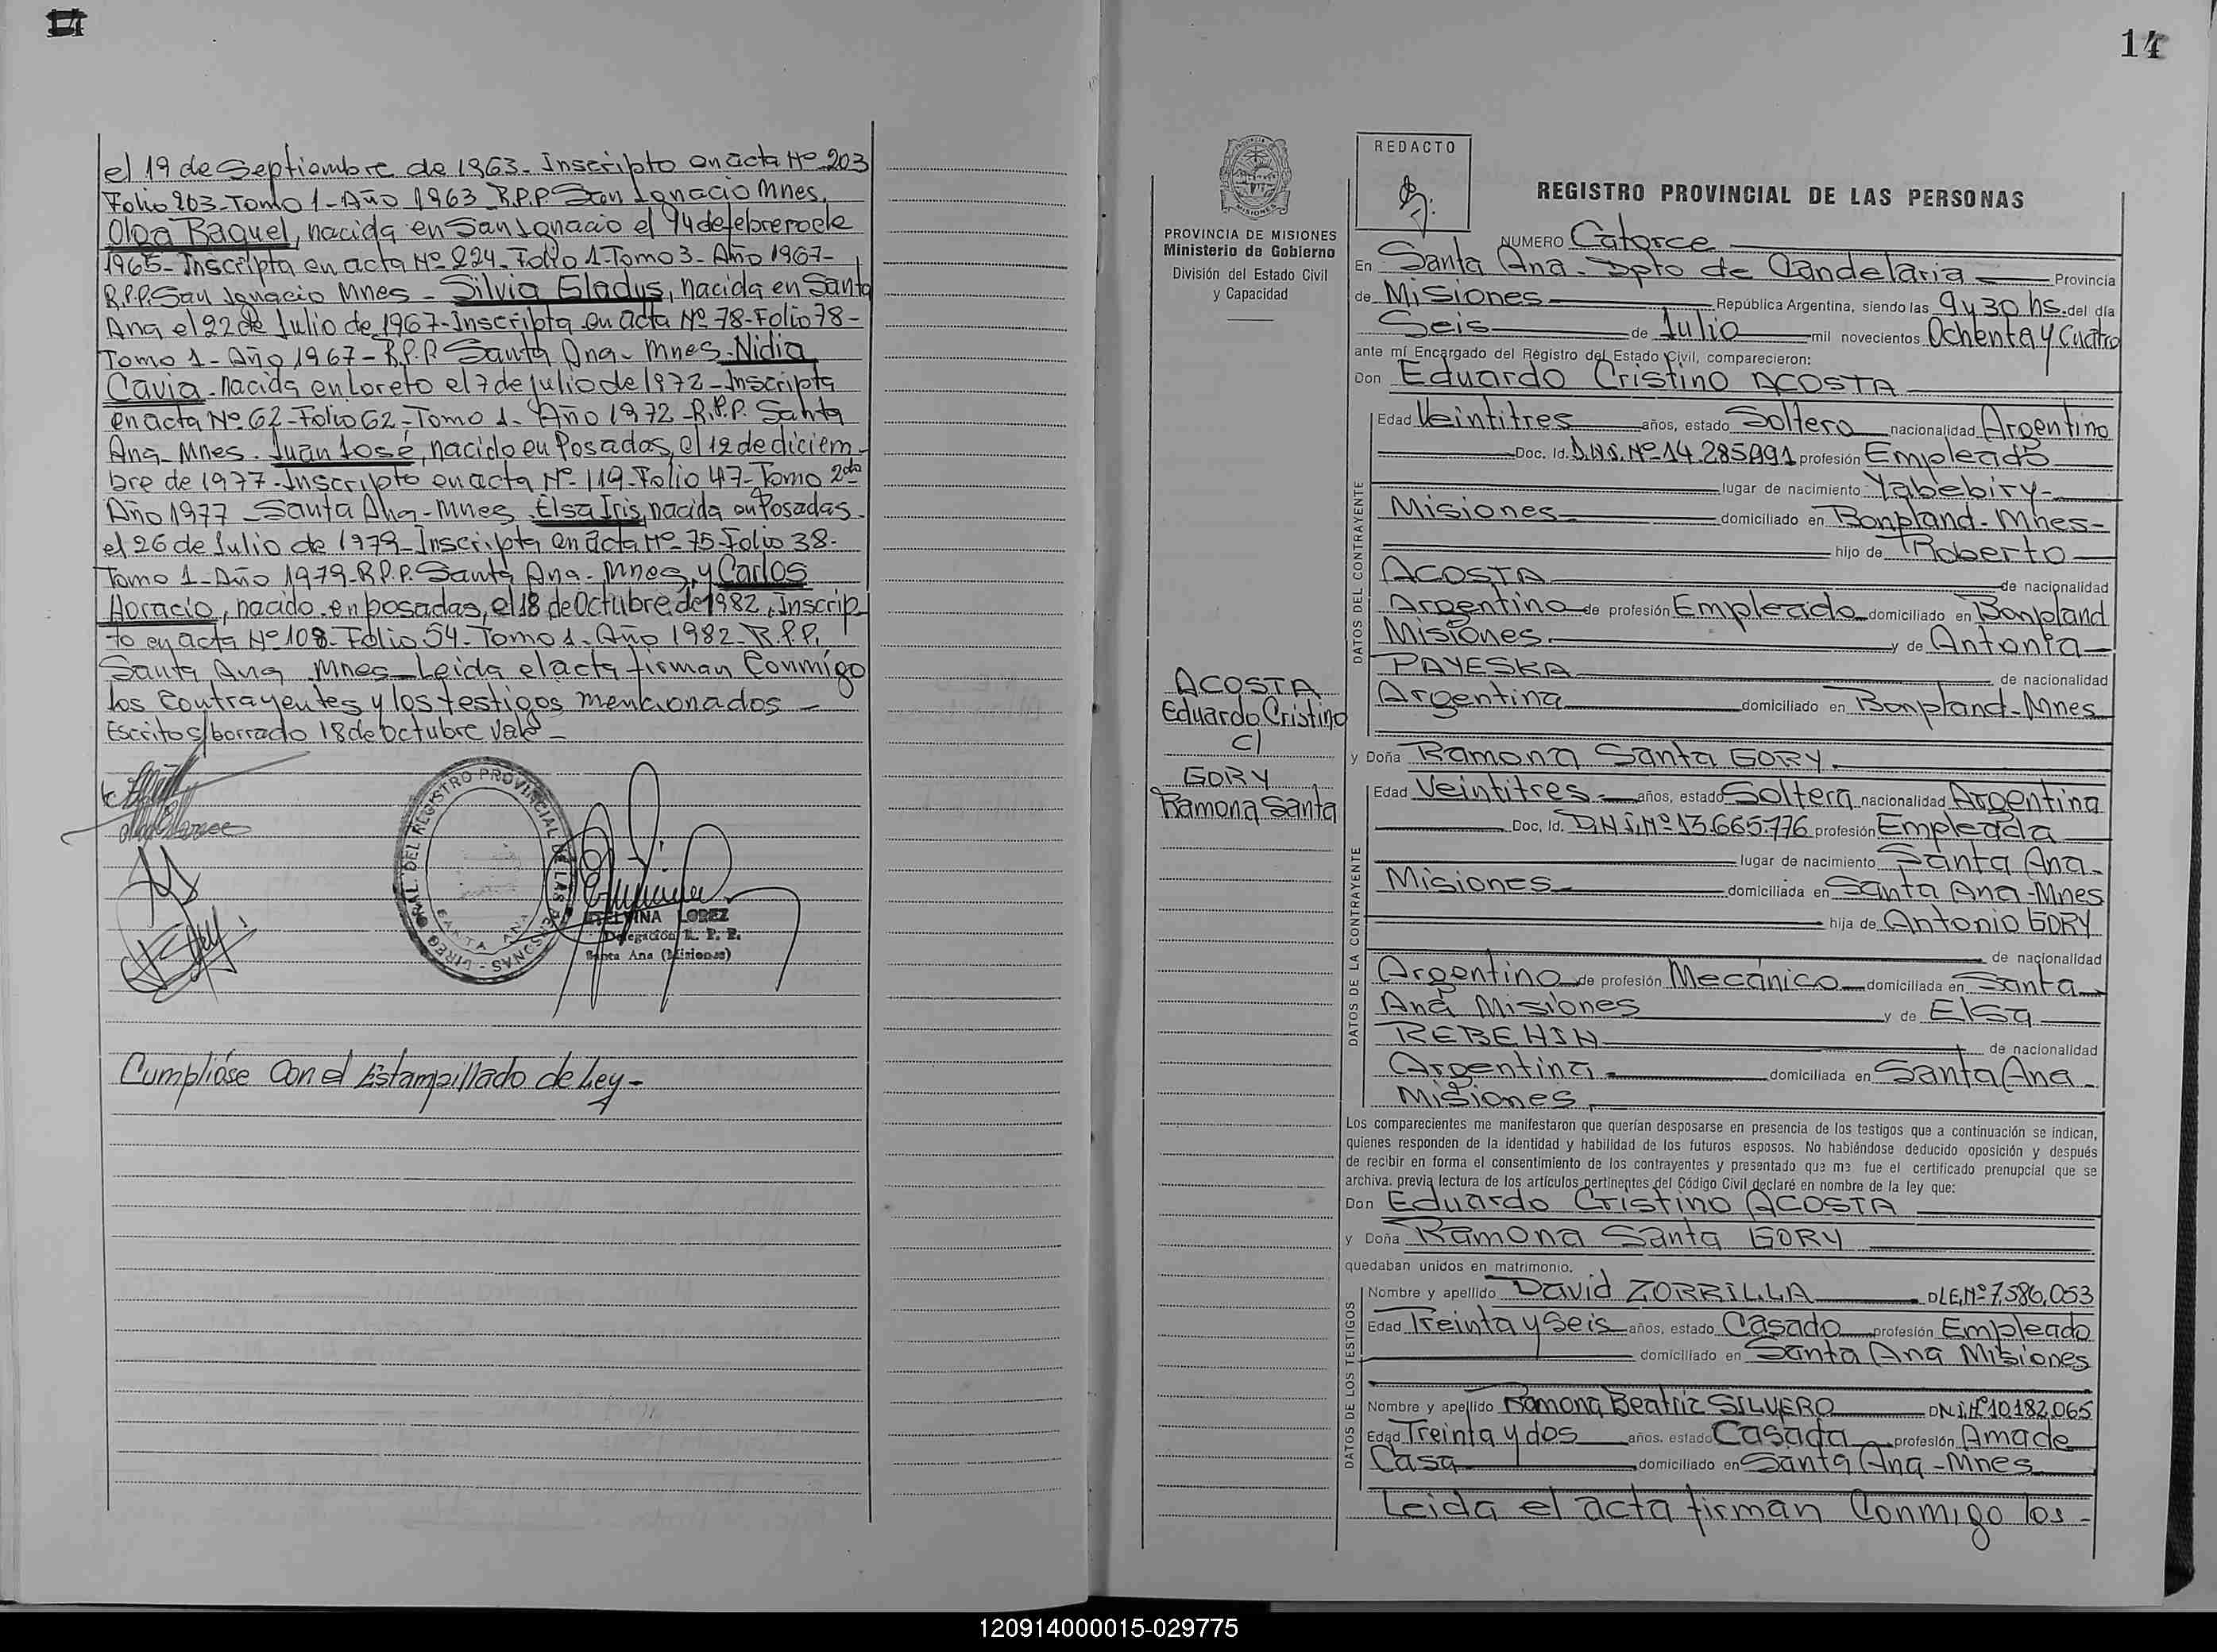 14
el 19 de Septiembre de 1963. Inscripto en acta Nº 203
Folio 203-Tomo 1-Año 1963 R.P.P San Ignacio Mnes.
Olga Raquel, nacida en San Ignacio el 14 de febrero de
1965- Inscripta en acta Nº 224-Folio 1-Tomo 3-Año 1967-
R.P.P. San Ignacio Mnes - Silvia Gladys, nacida en Santa
Ana el 22 de Julio de 1967-Inscripta en acta Nº 78-Folio 78-
Tomo 1-Año 1967-R.P.P Santa Ana-Mnes-Nidia
Cavia-nacida en Loreto el 7 de julio de 1972-Inscripta
en acta Nº 62-Folio 62-Tomo 1-Año 1972-R.P.P. Santa
Ana-Mnes. Juan José, nacido en Posadas, el 12 de diciem-
bre de 1977-Inscripto en acta Nº 119-Folio 47-Tomo 2do
Año 1977-Santa Ana-Mnes Elsa Iris, nacida en Posadas-
el 26 de Julio de 1979-Inscripta en acta Nº 75-Folio 38-
Tomo 1-Año 1979-R.P.P. Santa Ana-Mnes, y Carlos
Horacio, nacido en posadas, el 18 de Octubre de 1982, Inscrip
to en acta Nº 108-Folio 54-Tomo 1-Año 1982-R.P.P.
Santa Ana Mnes-Leida el acta firman Conmigo
los Contrayentes y los testigos mencionados-
Escrito s/borrado 18 de Octubre Vale-
DIREC. GRAL. DEL REGISTRO PROVINCIAL DE LAS PERSONAS
SANTA ANA
LOPEZ
Delegación R. P. P.
Santa Ana (Misiones)
Cumplióse Con el Estampillado de Ley-
14
PROVINCIA DE MISIONES
Ministerio de Gobierno
División del Estado Civil
y Capacidad
ACOSTA
Eduardo Cristino
c/
GORY
Ramona Santa
REDACTO
REGISTRO PROVINCIAL DE LAS PERSONAS
NUMERO Catorce
En Santa Ana-Dpto de Candelaria Provincia
de Misiones República Argentina, siendo las 9 y 30 hs. del día
Seis de Julio mil novecientos Ochenta y Cuatro
ante mí Encargado del Registro del Estado Civil, comparecieron:
Don Eduardo Cristino ACOSTA
DATOS DEL CONTRAYENTE
Edad Veintitres años, estado Soltero nacionalidad Argentino
Doc. Id. D.N.I. Nº 14.285.991 profesión Empleado
lugar de nacimiento Yabebiry-
Misiones domiciliado en Bonpland-Mnes-
hijo de Roberto
ACOSTA de nacionalidad
Argentino de profesión Empleado domiciliado en Bonpland
Misiones y de Antonia
PAYESKA de nacionalidad
Argentina domiciliado en Bonpland-Mnes
y Doña Ramona Santa GORY
DATOS DE LA CONTRAYENTE
Edad Veintitres años, estado Soltera nacionalidad Argentina
Doc. Id. D.N.I. Nº 13.665.776 profesión Empleada
lugar de nacimiento Santa Ana-
Misiones domiciliada en Santa Ana-Mnes
hija de Antonio GORY
de nacionalidad
Argentino de profesión Mecánico domiciliada en Santa
Ana Misiones y de Elsa
REBEHIN de nacionalidad
Argentina domiciliada en Santa Ana-
Misiones
Los comparecientes me manifestaron que querían desposarse en presencia de los testigos que a continuación se indican,
quienes responden de la identidad y habilidad de los futuros esposos. No habiéndose deducido oposición y después
de recibir en forma el consentimiento de los contrayentes y presentado que me fue el certificado prenupcial que se
archiva. previa lectura de los artículos pertinentes del Código Civil declaré en nombre de la ley que:
Don Eduardo Cristino ACOSTA
y Doña Ramona Santa GORY
quedaban unidos en matrimonio.
DATOS DE LOS TESTIGOS
Nombre y apellido David ZORRILLA DLE.Nº 7.586.053
Edad Treinta y Seis años, estado Casado profesión Empleado
domiciliado en Santa Ana Misiones
Nombre y apellido Ramona Beatriz SILVERO DN.I.Nº 10.182.065
Edad Treinta y dos años. estado Casada profesión Ama de
Casa domiciliado en Santa Ana-Mnes
Leida el acta firman Conmigo los-
120914000015-029775